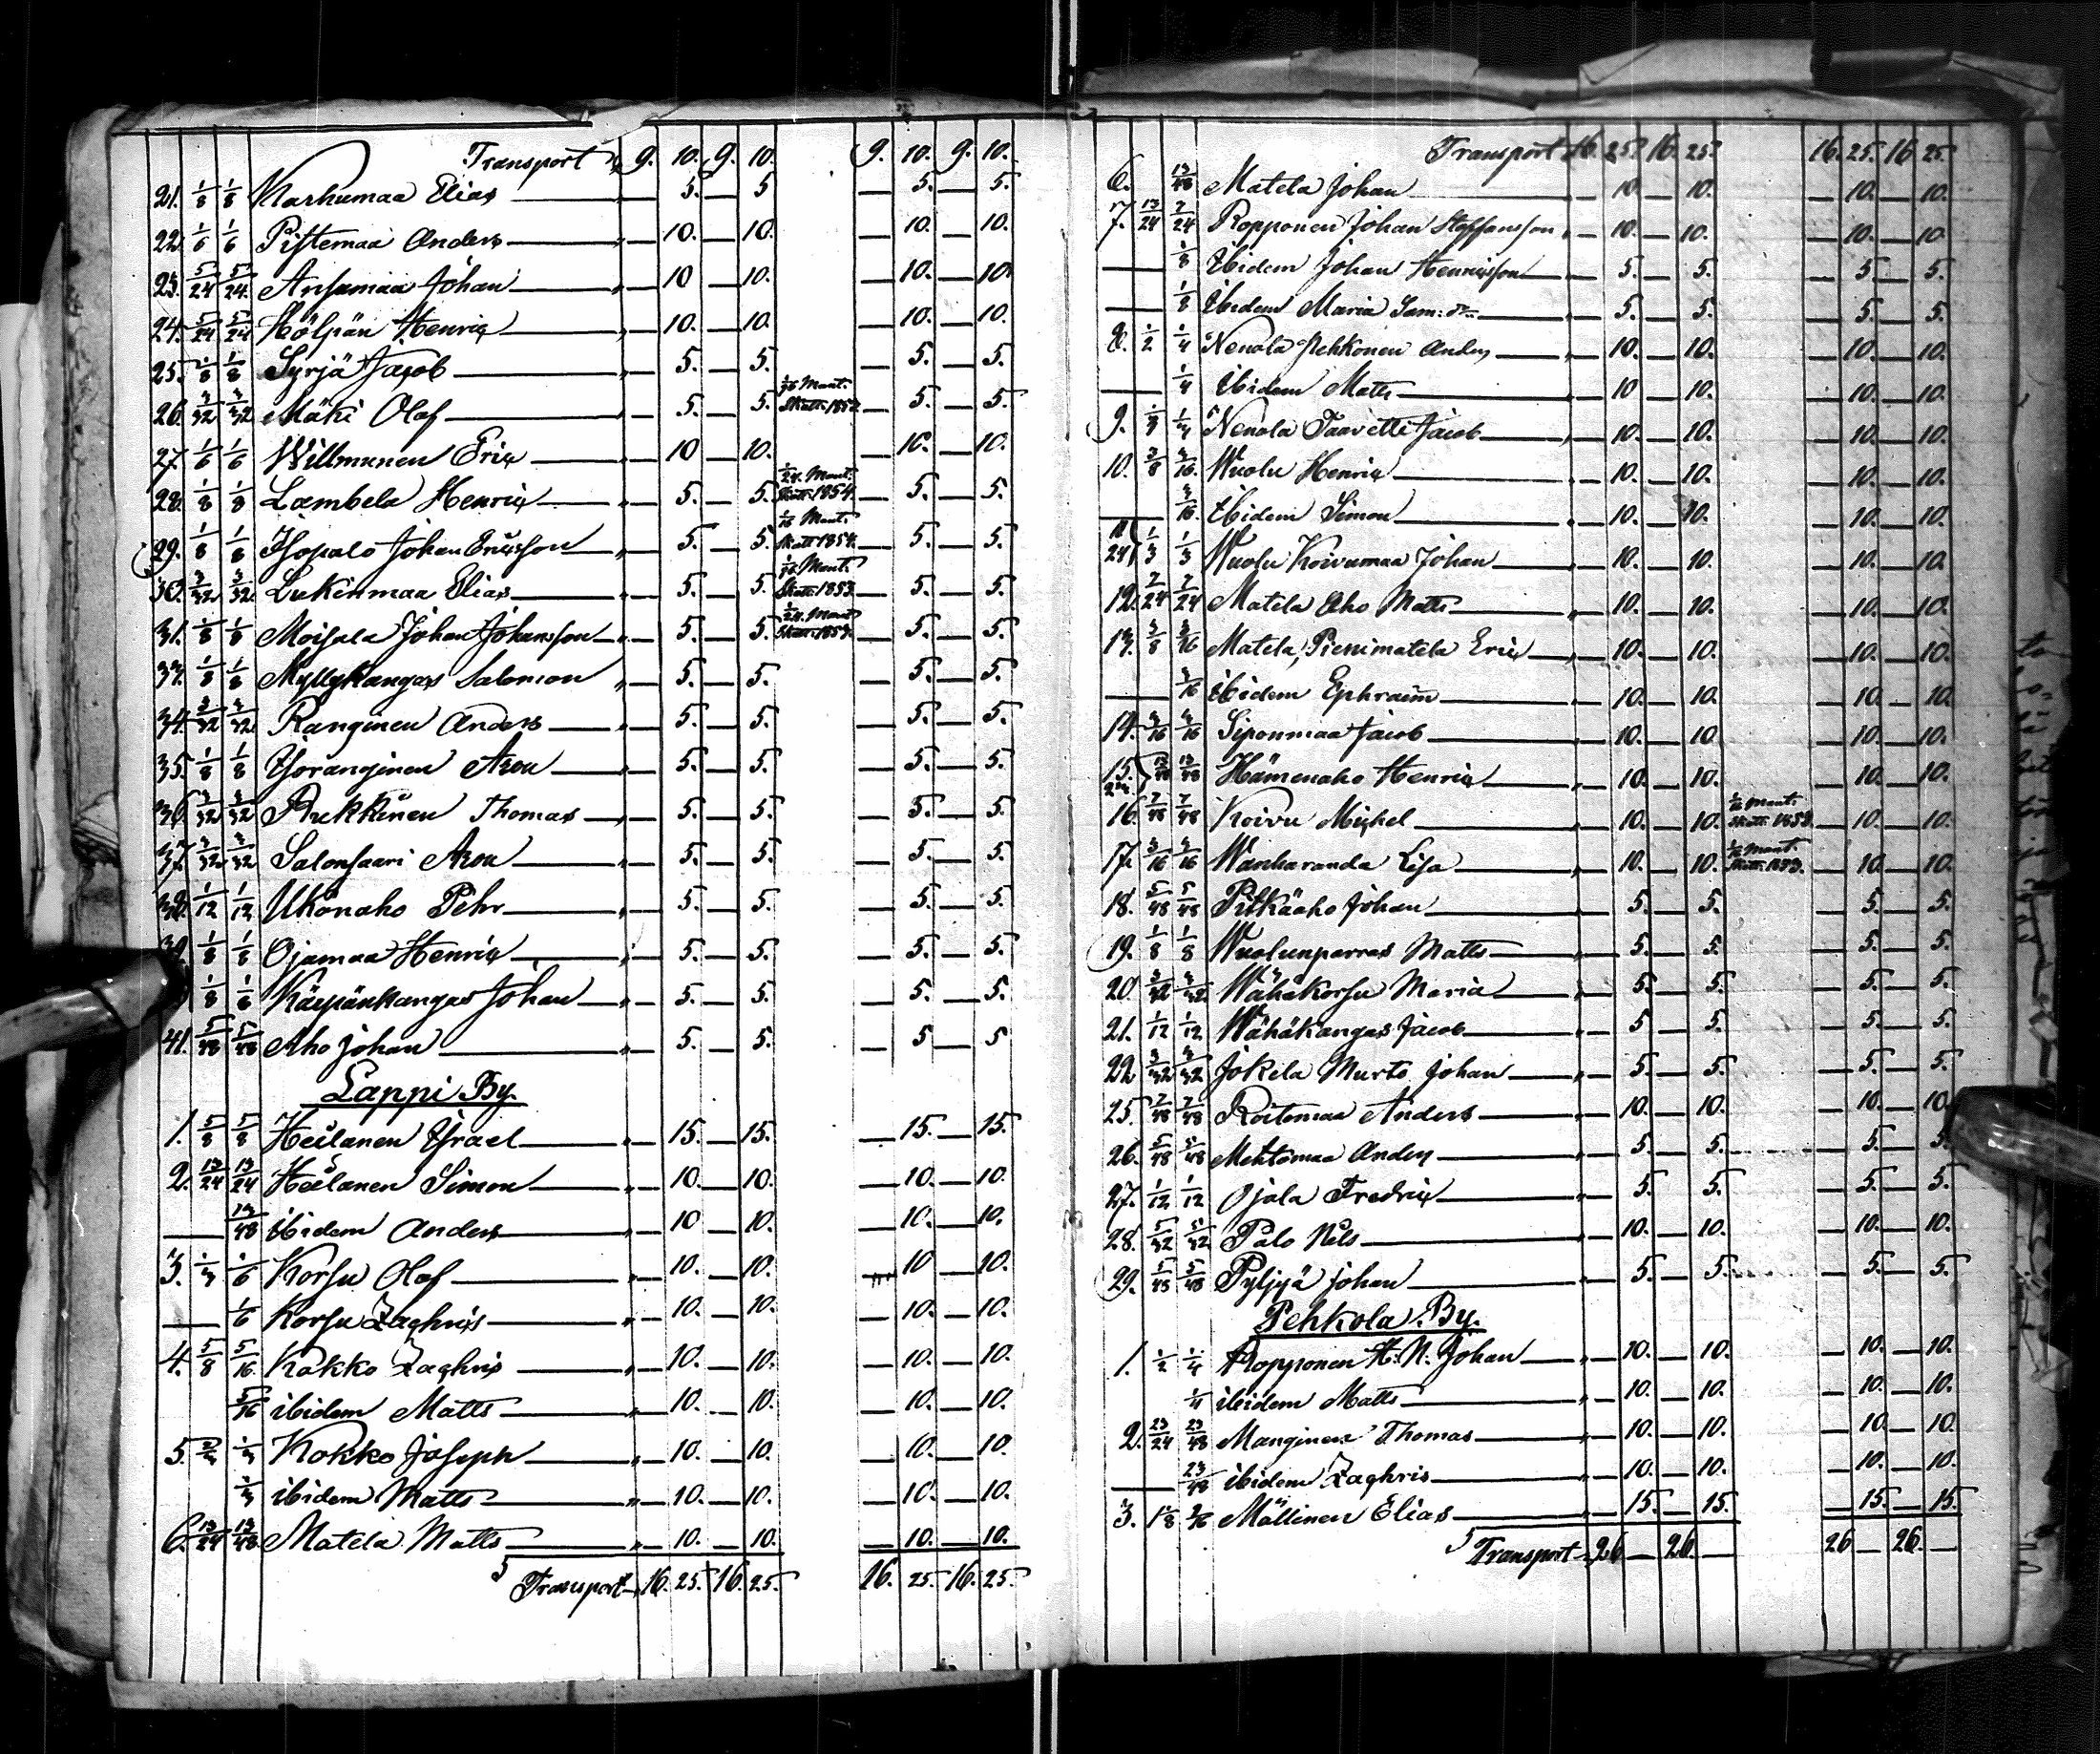 Transport 9. 10. 9. 10. 9. 10. 9. 10.
21. 1/8 1/8 Karhumaa Elias — 5. — 5 — 5. — 5.
22. 1/6 1/6 Pistemaa Anders — 10. — 10. — 10. — 10.
23. 5/24 5/24 Ansamaa Johan — 10 — 10. — 10. — 10.
24. 5/24 5/24 Kölpän Henric — 10. — 10. — 10. — 10.
25. 1/8 1/8 Syrjä Jacob — 5. — 5. — 5. — 5.
26. 3/32 3/32 Mäki Olof — 5. — 5. Mant. Skatt. 1852 — 5. — 5.
27. 1/6 1/6 Willmunen Eric — 10 — 10. — 10. — 10.
28. 1/8 1/8 Lambela Henric — 5. — 5. 1/24 Mant. Skatt. 1854. — 5. — 5.
29. 1/8 1/8 Isopalo Johan Ericsson — 5. — 5. 1/16 Mant. Skatt 1854. — 5. — 5.
30. 3/32 3/32 Lukinmaa Elias — 5. — 5. Mant. Skatt. 1853. — 5. — 5.
31. 1/8 1/8 Moisala Johan Johansson — 5. — 5. 1/24 Mant. Skatt. 1853. — 5. — 5.
1/8 1/8 Myllykangas Salomon — 5. — 5. — 5. — 5.
34. 3/32 3/32 Ranginen Anders — 5. — 5. — 5. — 5.
35. 1/8 1/8 Isoranginen Aron — 5. — 5. — 5. — 5.
36. 3/32 3/32 Rukkinen Thomas — 5. — 5. — 5. — 5.
37. 3/32 3/32 Salonsaari Aron — 5. — 5. — 5. — 5.
38. 1/12 1/12 Ukonaho Pehr — 5. — 5. — 5. — 5.
39. 1/8 1/8 Ojamaa Henric — 5. — 5. — 5. — 5.
1/8 1/8 Kärpänkangas Johan — 5. — 5. — 5. — 5.
41. 5/48 5/48 Aho Johan — 5. — 5. — 5 — 5
Lappi By.
1. 5/8 5/8 Heilanen Israel — 15. — 15. — 15. — 15.
2. 13/24 13/24 Heilanen Simon — 10. — 10. — 10. — 10.
— 13/48 ibidem Anders — 10 — 10. — 10. — 10.
3. 1/3 1/6 Korsu Olof — 10. — 10. — 10 — 10.
— 1/6 Korsu Zachris — 10. — 10. — 10. — 10.
4. 5/8 5/16 Kokko Zachris — 10. — 10. — 10. — 10.
5/16 ibidem Matts — 10. — 10. — 10. — 10.
5. 2/3 1/3 Kokko Joseph — 10. — 10. — 10. — 10.
1/3 ibidem Matts — 10. — 10. — 10. — 10.
6. 13/24 13/48 Matela Matts — 10. — 10. — 10. — 10.
Transport 16. 25. 16. 25. 16. 25. 16. 25.
Transport 16. 25. 16. 25. 16. 25. 16 25.
6. 13/48 Matela Johan — 10. — 10. — 10. — 10.
7. 13/24 7/24 Ropponen Johan Staffansson — 10. — 10. — 10. — 10
— 1/8 Ibidem Johan Henricsson — 5. — 5. — 5 — 5.
— 1/8 Ibidem Maria Sam: dr. — 5. — 5. — 5. — 5.
8. 1/2 1/4 Nenola Pehkonen Anders — 10. — 10. — 10. — 10.
— 1/4 Ibidem Matts — 10 — 10. — 10. — 10.
9. 1/3 1/3 Nenola Taavetti Jacob — 10. — 10. — 10. — 10.
10. 3/8 3/16 Wuolu Henric — 10. — 10. — 10. — 10.
— 3/16 Ibidem Simon — 10. — 10. — 10. — 10.
11 24 1/3 1/3 Wuolu Koivumaa Johan — 10. — 10. — 10. — 10.
12. 7/24 7/24 Matila Aho Matts — 10. — 10. — 10. — 10.
13. 3/8 3/16 Matela, Pienimatela Eric — 10. — 10. — 10. — 10.
— 3/16 ibidem Ephraim — 10. — 10. — 10. — 10.
14. 3/16 3/16 Siponmaa Jacob — 10. — 10 — 10. — 10.
15. 13/48 13/48 Hämenaho Henric — 10. — 10. — 10. — 10.
16. 7/48 7/48 Koivu Michel — 10. — 10. Mant. Skatt. 1853. — 10. — 10.
17. 3/16 3/16 Wanharanda Lisa — 10. — 10. Mant. Skatt. 1853. — 10. — 10.
18. 5/48 5/48 Pitkäaho Johan — 5. — 5. — 5. — 5.
19. 1/8 1/8 Wuolunparras Matts — 5. — 5. — 5. — 5.
20 3/32 3/32 Wähäkorsu Maria — 5. — 5. — 5. — 5.
21. 1/12 1/12 Wähäkangas Jacob — 5 — 5. — 5. — 5.
22 3/32 3/32 Jokela Murto Johan — 5. — 5. — 5. — 5.
25 7/48 7/48 Roitomaa Anders — 10. — 10. — 10. — 10
26. 5/48 5/48 Mehtomaa Anders — 5. — 5. — 5. — 5.
27. 1/12 1/12 Ojala Fredric — 5. — 5. — 5. — 5.
28. 5/32 5/32 Palo Nils — 10. — 10. — 10. — 10.
29. 5/48 5/48 Pyljyä Johan — 5. — 5. — 5. — 5.
Pehkola By.
1. 1/2 1/4 Ropponen H: N: Johan — 10. — 10. — 10. — 10.
1/4 ibidem Matts — 10. — 10. — 10. — 10.
2. 23/24 23/48 Manginen Thomas — 10. — 10. — 10. — 10.
— 23/48 ibidem Zachris — 10. — 10. — 10. — 10.
3. 1 1/8 Mällinen Elias — 15. — 15. — 15. — 15.
Transport 26 — 26. — 26 — 26. —